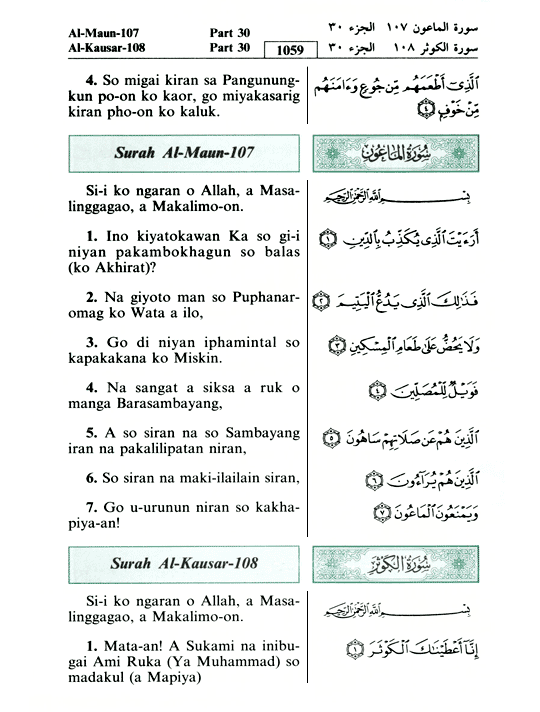 Al-Maun-107 Part 30 سورة الماعون ١٠٧ الجزء ٣٠
Al-Kausar-108 Part 30 1059 سورة الكوثر ١٠٨ الجزء ٣٠
4. So migai kiran sa Pangunung-
kun po-on ko kaor, go miyakasarig
kiran pho-on ko kaluk.
ٱلَّذِىٓ أَطْعَمَهُم مِّن جُوعٍ وَءَامَنَهُم
مِّنْ خَوْفٍۭ ٤
Surah Al-Maun-107
سُورَةُ المَاعُونِ
Si-i ko ngaran o Allah, a Masa-
linggagao, a Makalimo-on.
بِسْمِ ٱللَّهِ ٱلرَّحْمَٰنِ ٱلرَّحِيمِ
1. Ino kiyatokawan Ka so gi-i
niyan pakambokhagun so balas
(ko Akhirat)?
أَرَءَيْتَ ٱلَّذِى يُكَذِّبُ بِٱلدِّينِ ١
2. Na giyoto man so Puphanar-
omag ko Wata a ilo,
فَذَٰلِكَ ٱلَّذِى يَدُعُّ ٱلْيَتِيمَ ٢
3. Go di niyan iphamintal so
kapakakana ko Miskin.
وَلَا يَحُضُّ عَلَىٰ طَعَامِ ٱلْمِسْكِينِ ٣
4. Na sangat a siksa a ruk o
manga Barasambayang,
فَوَيْلٌ لِّلْمُصَلِّينَ ٤
5. A so siran na so Sambayang
iran na pakalilipatan niran,
ٱلَّذِينَ هُمْ عَن صَلَاتِهِمْ سَاهُونَ ٥
6. So siran na maki-ilailain siran,
ٱلَّذِينَ هُمْ يُرَآءُونَ ٦
7. Go u-urunun niran so kakha-
piya-an!
وَيَمْنَعُونَ ٱلْمَاعُونَ ٧
Surah Al-Kausar-108
سُورَةُ الكَوْثَرِ
Si-i ko ngaran o Allah, a Masa-
linggagao, a Makalimo-on.
بِسْمِ ٱللَّهِ ٱلرَّحْمَٰنِ ٱلرَّحِيمِ
1. Mata-an! A Sukami na inibu-
gai Ami Ruka (Ya Muhammad) so
madakul (a Mapiya)
إِنَّآ أَعْطَيْنَٰكَ ٱلْكَوْثَرَ ١